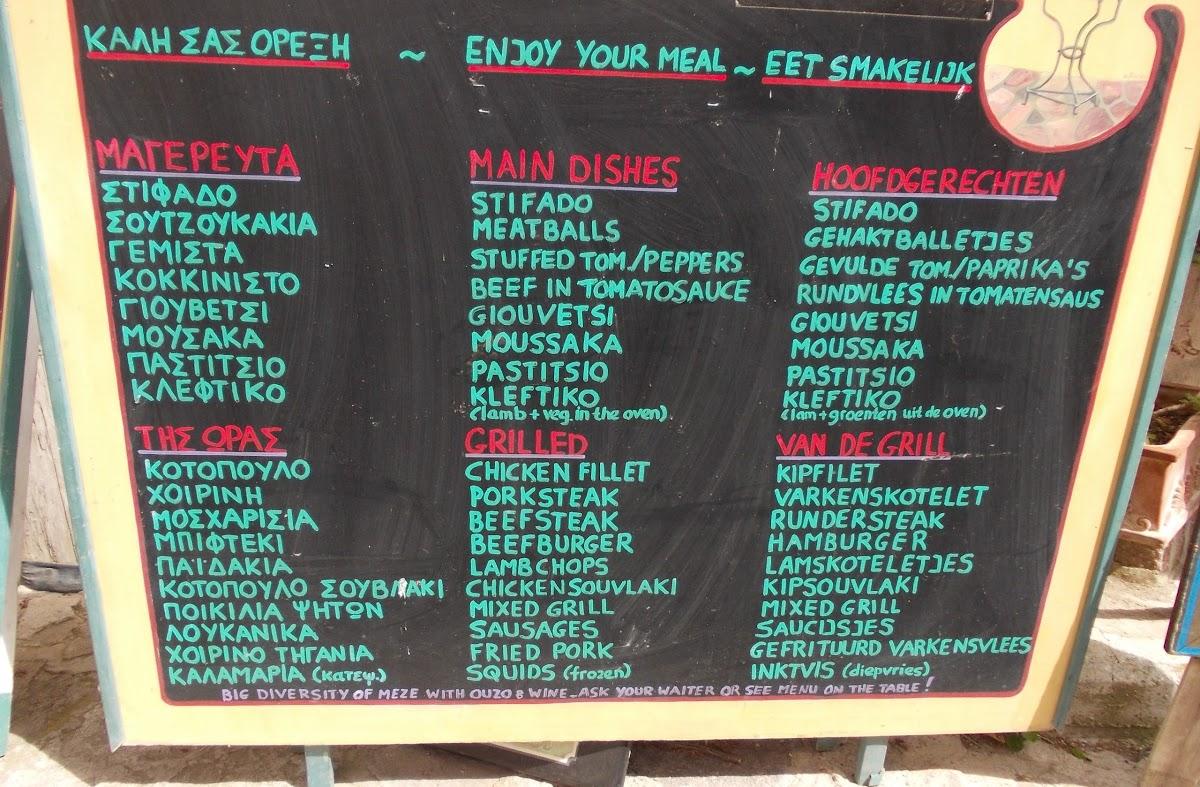 ΚΑΛΗ ΣΑΣ ΟΡΕΞΗ ~ ENJOY YOUR MEAL ~ EET SMAKELIJK
ΜΑΓΕΡΕΥΤΑ
ΣΤΙΦΑΔΟ
ΣΟΥΤΖΟΥΚΑΚΙΑ
ΓΕΜΙΣΤΑ
ΚΟΚΚΙΝΙΣΤΟ
ΓΙΟΥΒΕΤΣΙ
ΜΟΥΣΑΚΑ
ΠΑΣΤΙΤΣΙΟ
ΚΛΕΦΤΙΚΟ
ΤΗΣ ΩΡΑΣ
ΚΟΤΟΠΟΥΛΟ
ΧΟΙΡΙΝΗ
ΜΟΣΧΑΡΙΣΙΑ
ΜΠΙΦΤΕΚΙ
ΠΑΪΔΑΚΙΑ
ΚΟΤΟΠΟΥΛΟ ΣΟΥΒΛΑΚΙ
ΠΟΙΚΙΛΙΑ ΨΗΤΩΝ
ΛΟΥΚΑΝΙΚΑ
ΧΟΙΡΙΝΟ ΤΗΓΑΝΙΑ
ΚΑΛΑΜΑΡΙΑ (κατεψ.)
MAIN DISHES
STIFADO
MEATBALLS
STUFFED TOM./PEPPERS
BEEF IN TOMATOSAUCE
GIOUVETSI
MOUSSAKA
PASTITSIO
KLEFTIKO
(lamb + veg. in the oven)
GRILLED
CHICKEN FILLET
PORKSTEAK
BEEFSTEAK
BEEFBURGER
LAMBCHOPS
CHICKENSOUVLAKI
MIXED GRILL
SAUSAGES
FRIED PORK
SQUIDS (frozen)
HOOFDGERECHTEN
STIFADO
GEHAKTBALLETJES
GEVULDE TOM./PAPRIKA'S
RUNDVLEES IN TOMATENSAUS
GIOUVETSI
MOUSSAKA
PASTITSIO
KLEFTIKO
(lam + groenten uit de oven)
VAN DE GRILL
KIPFILET
VARKENSKOTELET
RUNDERSTEAK
HAMBURGER
LAMSKOTELETJES
KIPSOUVLAKI
MIXED GRILL
SAUCIJSJES
GEFRITUURD VARKENSVLEES
INKTVIS (diepvries)
BIG DIVERSITY OF MEZE WITH OUZO & WINE_ASK YOUR WAITER OR SEE MENU ON THE TABLE!